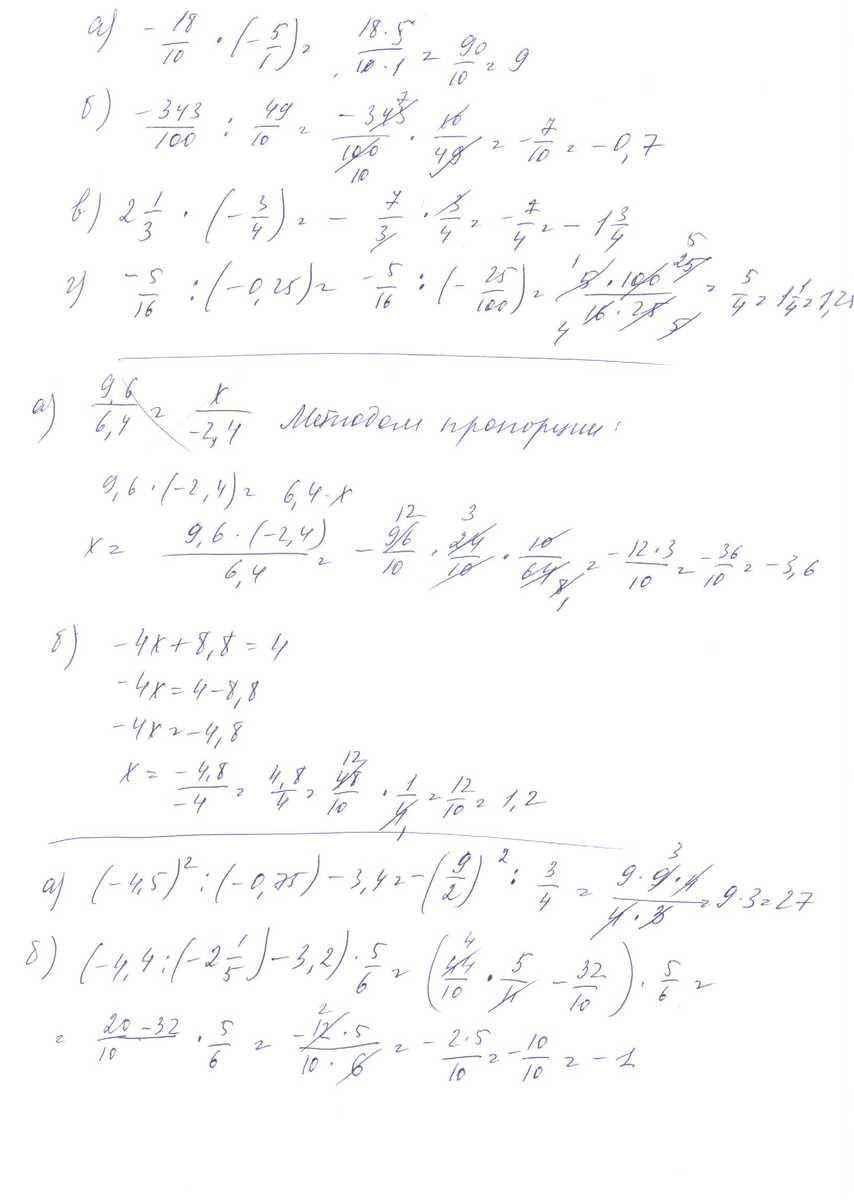 а) -18/10 · (-5/1) = 18·5/10·1 = 90/10 = 9
б) -343/100 : 49/10 = -343/100 · 10/49 = -7/10 = -0,7
в) 2 1/3 · (-3/4) = - 7/3 · 3/4 = -7/4 = -1 3/4
г) -5/16 : (-0,25) = -5/16 : (-25/100) = 5·100/16·25 = 5/4 = 1 1/4 = 1,25
а) 9,6/6,4 = x/-2,4 Методом пропорции:
9,6·(-2,4) = 6,4·x
x = 9,6·(-2,4)/6,4 = -96/10 · 24/10 · 10/64 = -12·3/10 = -36/10 = -3,6
б) -4x+8,8=4
-4x=4-8,8
-4x=-4,8
x = -4,8/-4 = 4,8/4 = 48/10 · 1/4 = 12/10 = 1,2
а) (-4,5)² : (-0,75) - 3,4 = -(9/2)² : 3/4 = 9·9·4/4·3 = 9·3 = 27
б) (-4,4 : (-2 1/5) - 3,2) · 5/6 = (44/10 · 5/11 - 32/10) · 5/6 =
= 20-32/10 · 5/6 = -12·5/10·6 = -2·5/10 = -10/10 = -1